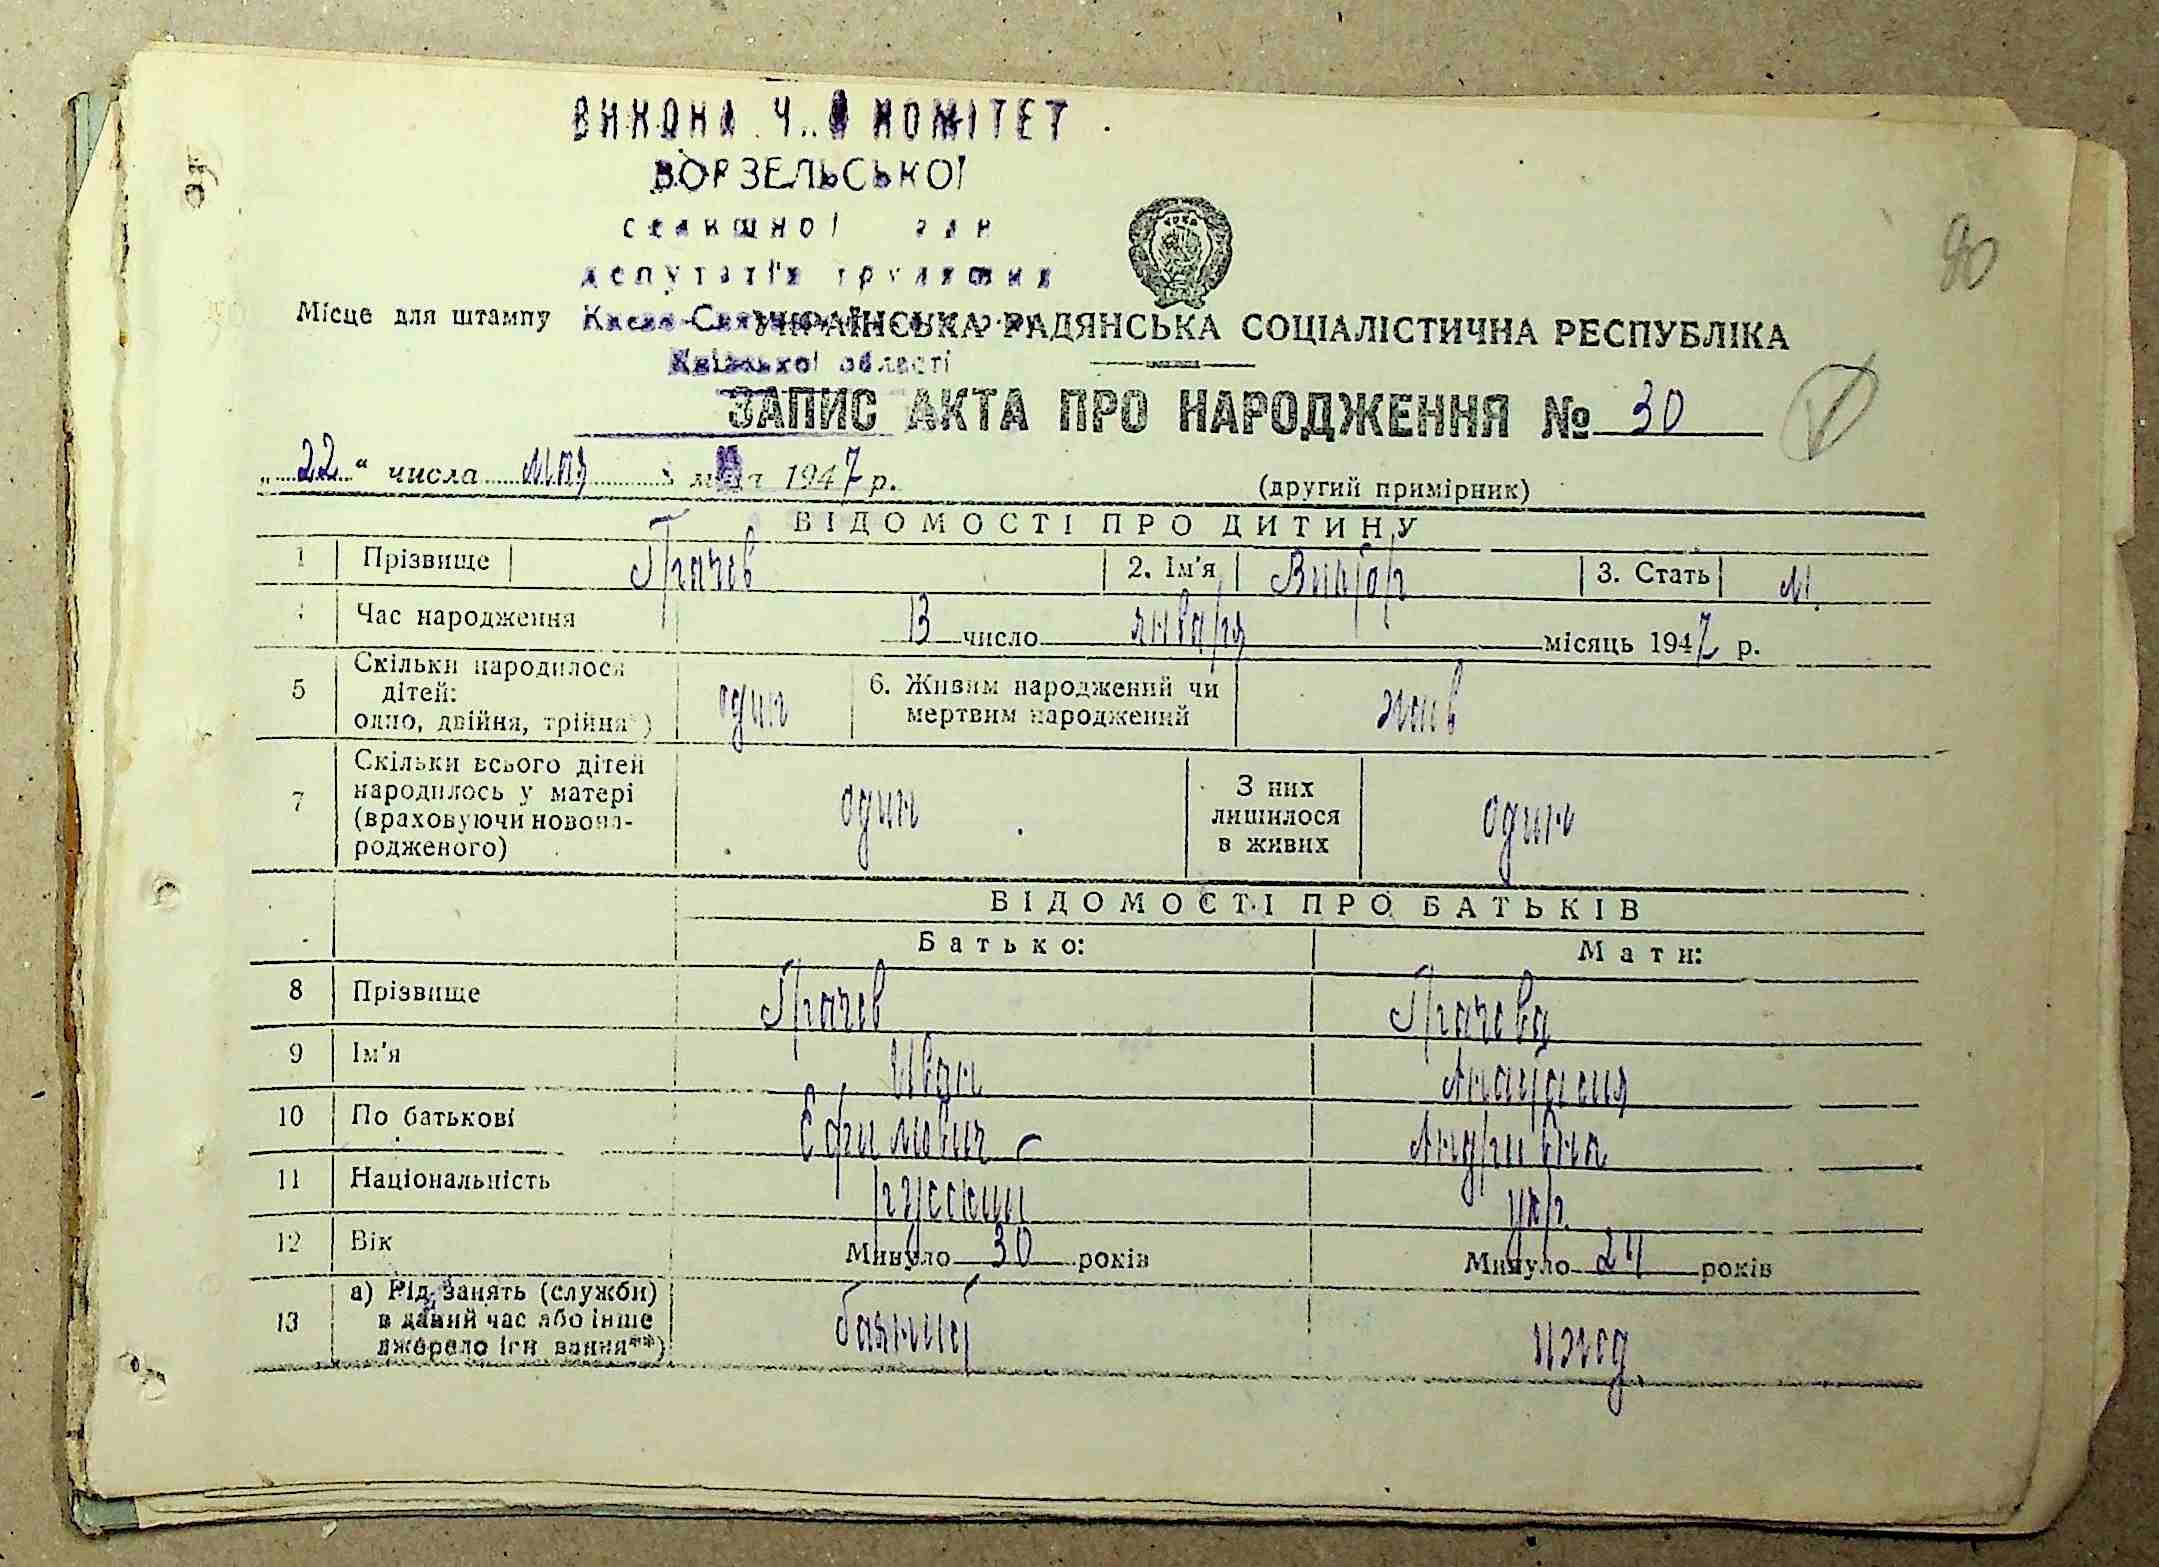 ВИКОНА Ч. Й КОМІТЕТ
ВОРЗЕЛЬСЬКОЇ
селищної ради
депутатів трудящих
Місце для штампу
Київської області
УКРАЇНСЬКА РАДЯНСЬКА СОЦІАЛІСТИЧНА РЕСПУБЛІКА
90
ЗАПИС АКТА ПРО НАРОДЖЕННЯ № 30
„22“ числа мая м-ця 1947 р.
(другий примірник)
ВІДОМОСТІ ПРО ДИТИНУ
1 Прізвище Грачев 2. Ім'я Виктор 3. Стать м.
4 Час народження 13 число января місяць 1947 р.
5 Скільки народилося дітей: одно, двійня, трійня*) один 6. Живим народжений чи мертвим народжений жив
7 Скільки всього дітей народилось у матері (враховуючи новонародженого) один З них лишилося в живих один
ВІДОМОСТІ ПРО БАТЬКІВ
Батько: Мати:
8 Прізвище Грачев Грачева
9 Ім'я Иван Анастасия
10 По батькові Ефимович Андриевна
11 Національність русский укр.
12 Вік Минуло 30 років Минуло 24 років
13 а) Рід занять (служби) в даний час або інше джерело існування**) баянист ижд.